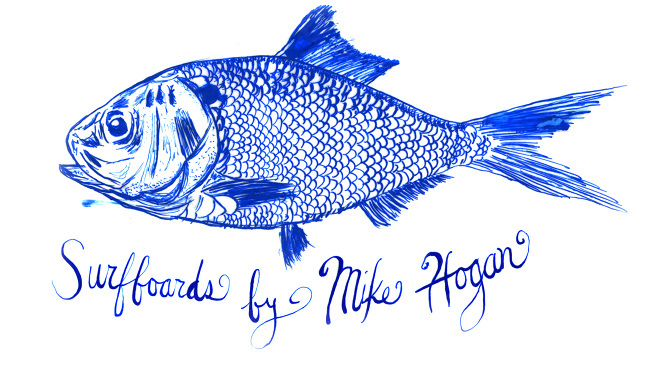 Surfboards by Mike Hogan